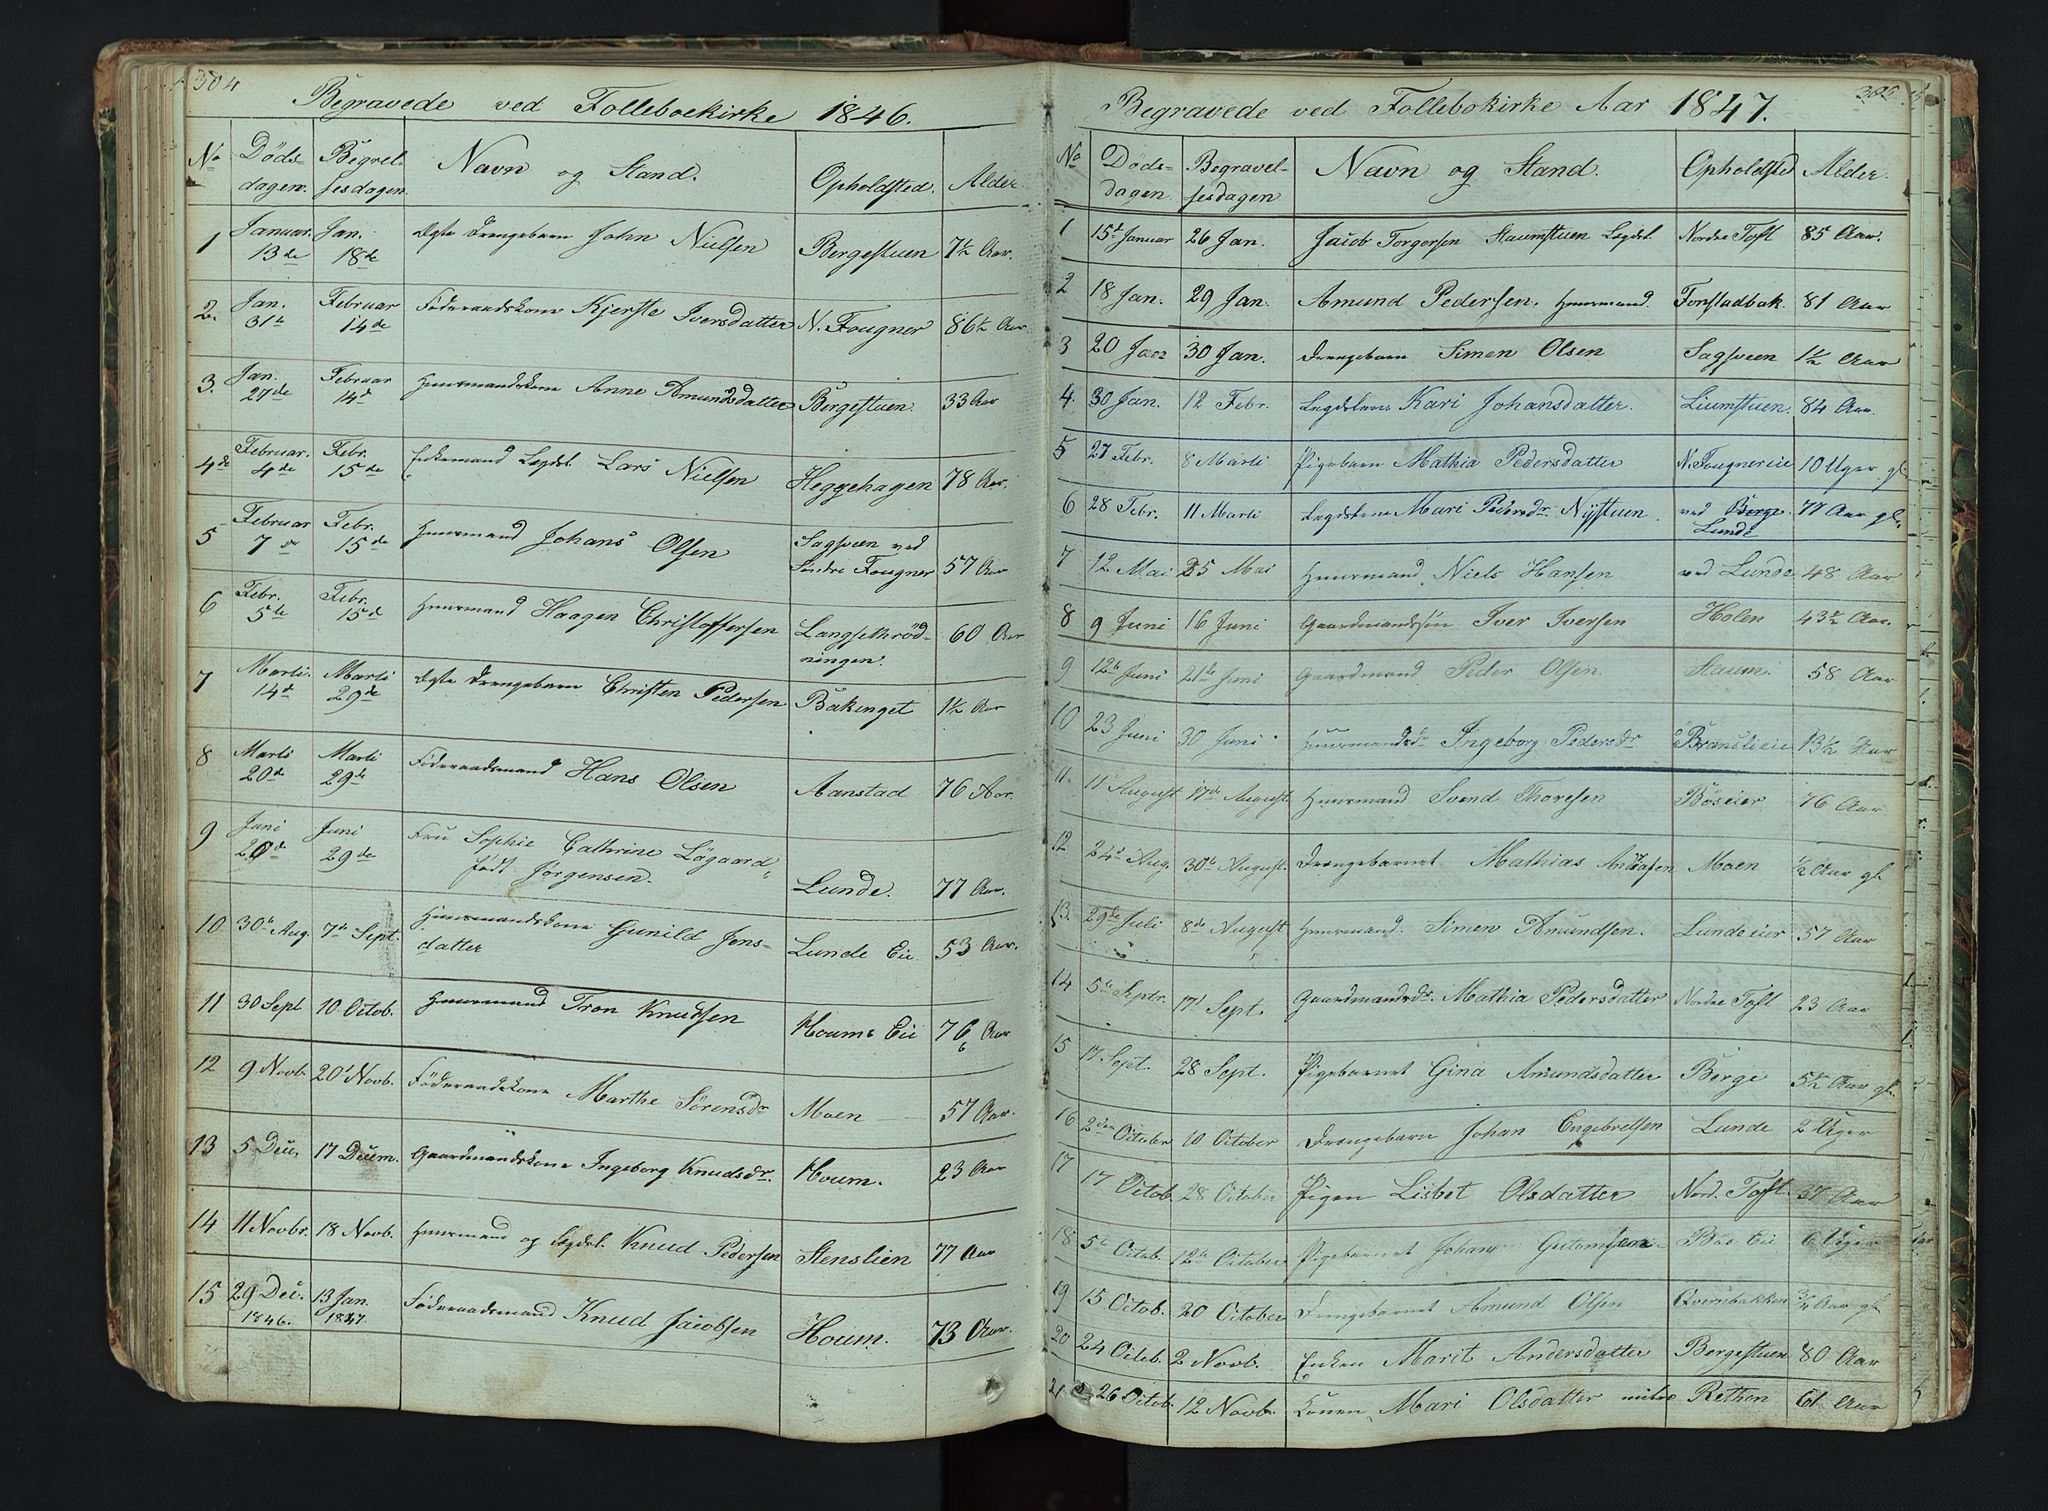 304
Begravede ved Folleboekirke 1846.
No Døds- dagen. Begravel- sesdagen. Navn og Stand. Opholdsted. Alder.
1 Januar. 13de Jan. 18de Ægte Drengebarn John Nielsen Bergestuen 7½ Aar.
2. Jan. 31te Februar 14de Føderaadskone Kjersti Iversdatter N. Fougner 86½ Aar
3. Jan. 27de Februar 14d Huusmandskone Anne Amundsdatter Bergestuen. 33 Aar
4de Februar. 4de Febr. 15de Enkemand Lægdsl. Lars Nielsen Heggehagen 78 Aar.
5 Februar 7de Febr. 15de Huusmand Johans Olsen Sagsveen ved Søndre Fougner 57 Aar
6 Febr. 5te Febr. 15de Huusmand Haagen Christoffersen Langsethrød- ningen. 60 Aar
7 Marti. 14d Marti 29de Ægte Drengebarn Christen Pedersen Bakenget 1½ Aar
8 Marti 20de Marti 29de Føderaadsmand Hans Olsen Aanstad 76 Aar.
9 Juni 20de Juni 29de Fru Sophie Cathrine Løgaard, født Jørgensen. Lunde. 77 Aar.
10 30te Aug. 7de Sept. Huusmandskone Gunild Jens- datter Lunde Eie. 53 Aar.
11 30 Sept 10 Octob. Huusmand Tron Knudsen Houms Eie 76 Aar
12 9 Novb. 20 Novb. Føderaadskone Marthe Sørensdr Moen 57 Aar.
13 5 Dec. 17 Decem. Gaardmandskone Ingeborg Knudsdr. Houm. 23 Aar
14 11 Novbr. 18 Novb. Huusmand og Lægdsl. Knud Pedersen Stenslien 77 Aar
15 29 Dec. 1846. 13 Jan. 1847. Føderaadsmand Knud Jacobsen Houm. 73 Aar.
305
Begravede ved Follebokirke Aar 1847.
No Døds- dagen Begravel- sesdagen Navn og Stand. Opholdsted Alder.
1 15de Januar 26 Jan. Jacob Torgersen Staumstuen Lægdsl. Nordre Toft 85 Aar.
2 18 Jan. 29 Jan. Amund Pedersen. Huusmand. Tonstadbak. 81 Aar
3 20 Jan 30 Jan. Drengebarn Simen Olsen Sagsveen 1½ Aar
4. 30 Jan. 12 Febr. Lægdslem Kari Johansdatter. Liumstuen. 84 Aar.
5 27 Febr. 8 Marti Pigebarn Mathia Pedersdatter N. Fougnereie 10 Uger gl.
6 28 Febr. 11 Marti Lægdslem Mari Pedersdr. Nystuen ved Berge. Lunde 77 Aar gl.
7 12 Mai 25 Mai Huusmand Niels Hansen ved Lunde 48 Aar
8 9 Juni 16 Juni Gaardmandssøn Iver Iversen Holen 43½ Aar.
9 12te Juni 21de Juni Gaardmand Peder Olsen Staum. 58 Aar
10 23 Juni 30 Juni Huusmandsdr Ingeborg Pedersdr Branslieie 13½ Aar
11. 11 August 17de August. Huusmand Svend Thoresen Böseier 76 Aar
12 24d Aug. 30te August. Drengebarnet Mathias Andersen Moen ½ Aar gl.
13. 29de Juli 8de August Huusmand. Simen Amundsen. Lundeeier 57 Aar
14 5te Septr. 17d Sept. Gaardmandsdr. Mathia Pedersdatter Nordre Toft 23 Aar
15 17. Sept. 28 Sept. Pigebarnet Gina Amundsdatter Berge 5½ Aar gl.
16 2den October 10 October Drengebarn Johan Engebretsen Lunde 2 Uger
17 17 Octob. 28 October Pigen Lisbet Olsdatter Nord. Toft. 37 Aar
18 5te Octob. 12te October Pigebarnet Johane Gutomsen Bös Eie 6 Uger
19 15 Octob. 20 October Drengebarnet Amund Olsen Qvernbakken ¾ Aar gl.
20 24 Octob. 2 Novb. Enken Marit Andersdatter Bergestuen 80 Aar
21 26 Octob. 12 Novb. Konen Mari Olsdatter Rethen 61 Aar